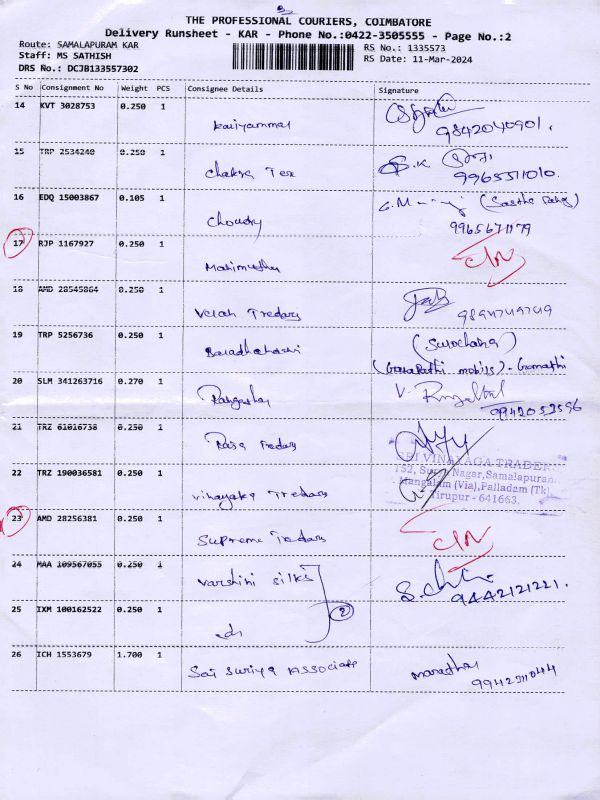 THE PROFESSIONAL COURIERS, COIMBATORE
Delivery Runsheet - KAR - Phone No.:0422-3505555 - Page No.:2
Route: SAMALAPURAM KAR
RS No.: 1335573
Staff: MS SATHISH
RS Date: 11-Mar-2024
DRS No.: DCJB133557302
S No Consignment No Weight PCS Consignee Details Signature
14 KVT 3028753 0.250 1
Kaiyammal
9842040901.
15 TRP 2534240 0.250 1
Chakra Tex
9965511010.
16 EDQ 15003867 0.105 1
Choudry
17 RJP 1167927 0.250 1
Marimuthu
18 AMD 28545864 0.250 1
Velan Tredars
19 TRP 5256736 0.250 1
(Sulochana)
(Ganapathi mobiles) - Gomathi
20 SLM 341263716 0.270 1
9942053596
21 TRZ 61016738 0.250 1
Raja Tredars
SRI VINAYAGA TRADERS
152, Surya Nagar, Samalapuram
Mangalam (Via), Palladam (Tk)
Tirupur - 641663.
22 TRZ 190036581 0.250 1
Vinayaka Tredars
23 AMD 28256381 0.250 1
Supreme Tredars
24 MAA 109567055 0.250 1
Varshini silks
2
9442121221.
25 IXM 100162522 0.250 1
26 ICH 1553679 1.700 1
Sai Suriya Associate